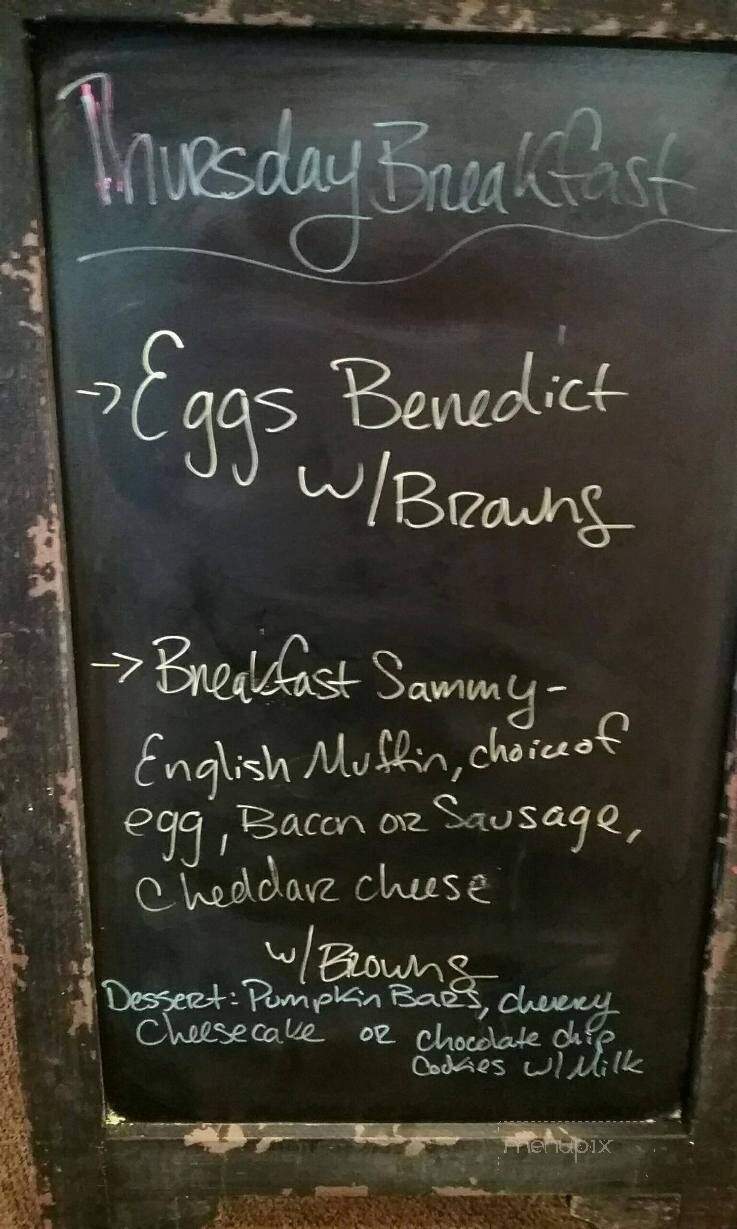 Thursday Breakfast
→ Eggs Benedict
w/Browns
→ Breakfast Sammy-
English Muffin, choice of
egg, Bacon or Sausage,
Cheddar cheese
w/Browns
Dessert: Pumpkin Bars, cherry
Cheesecake or chocolate chip
Cookies w/ Milk
menupix